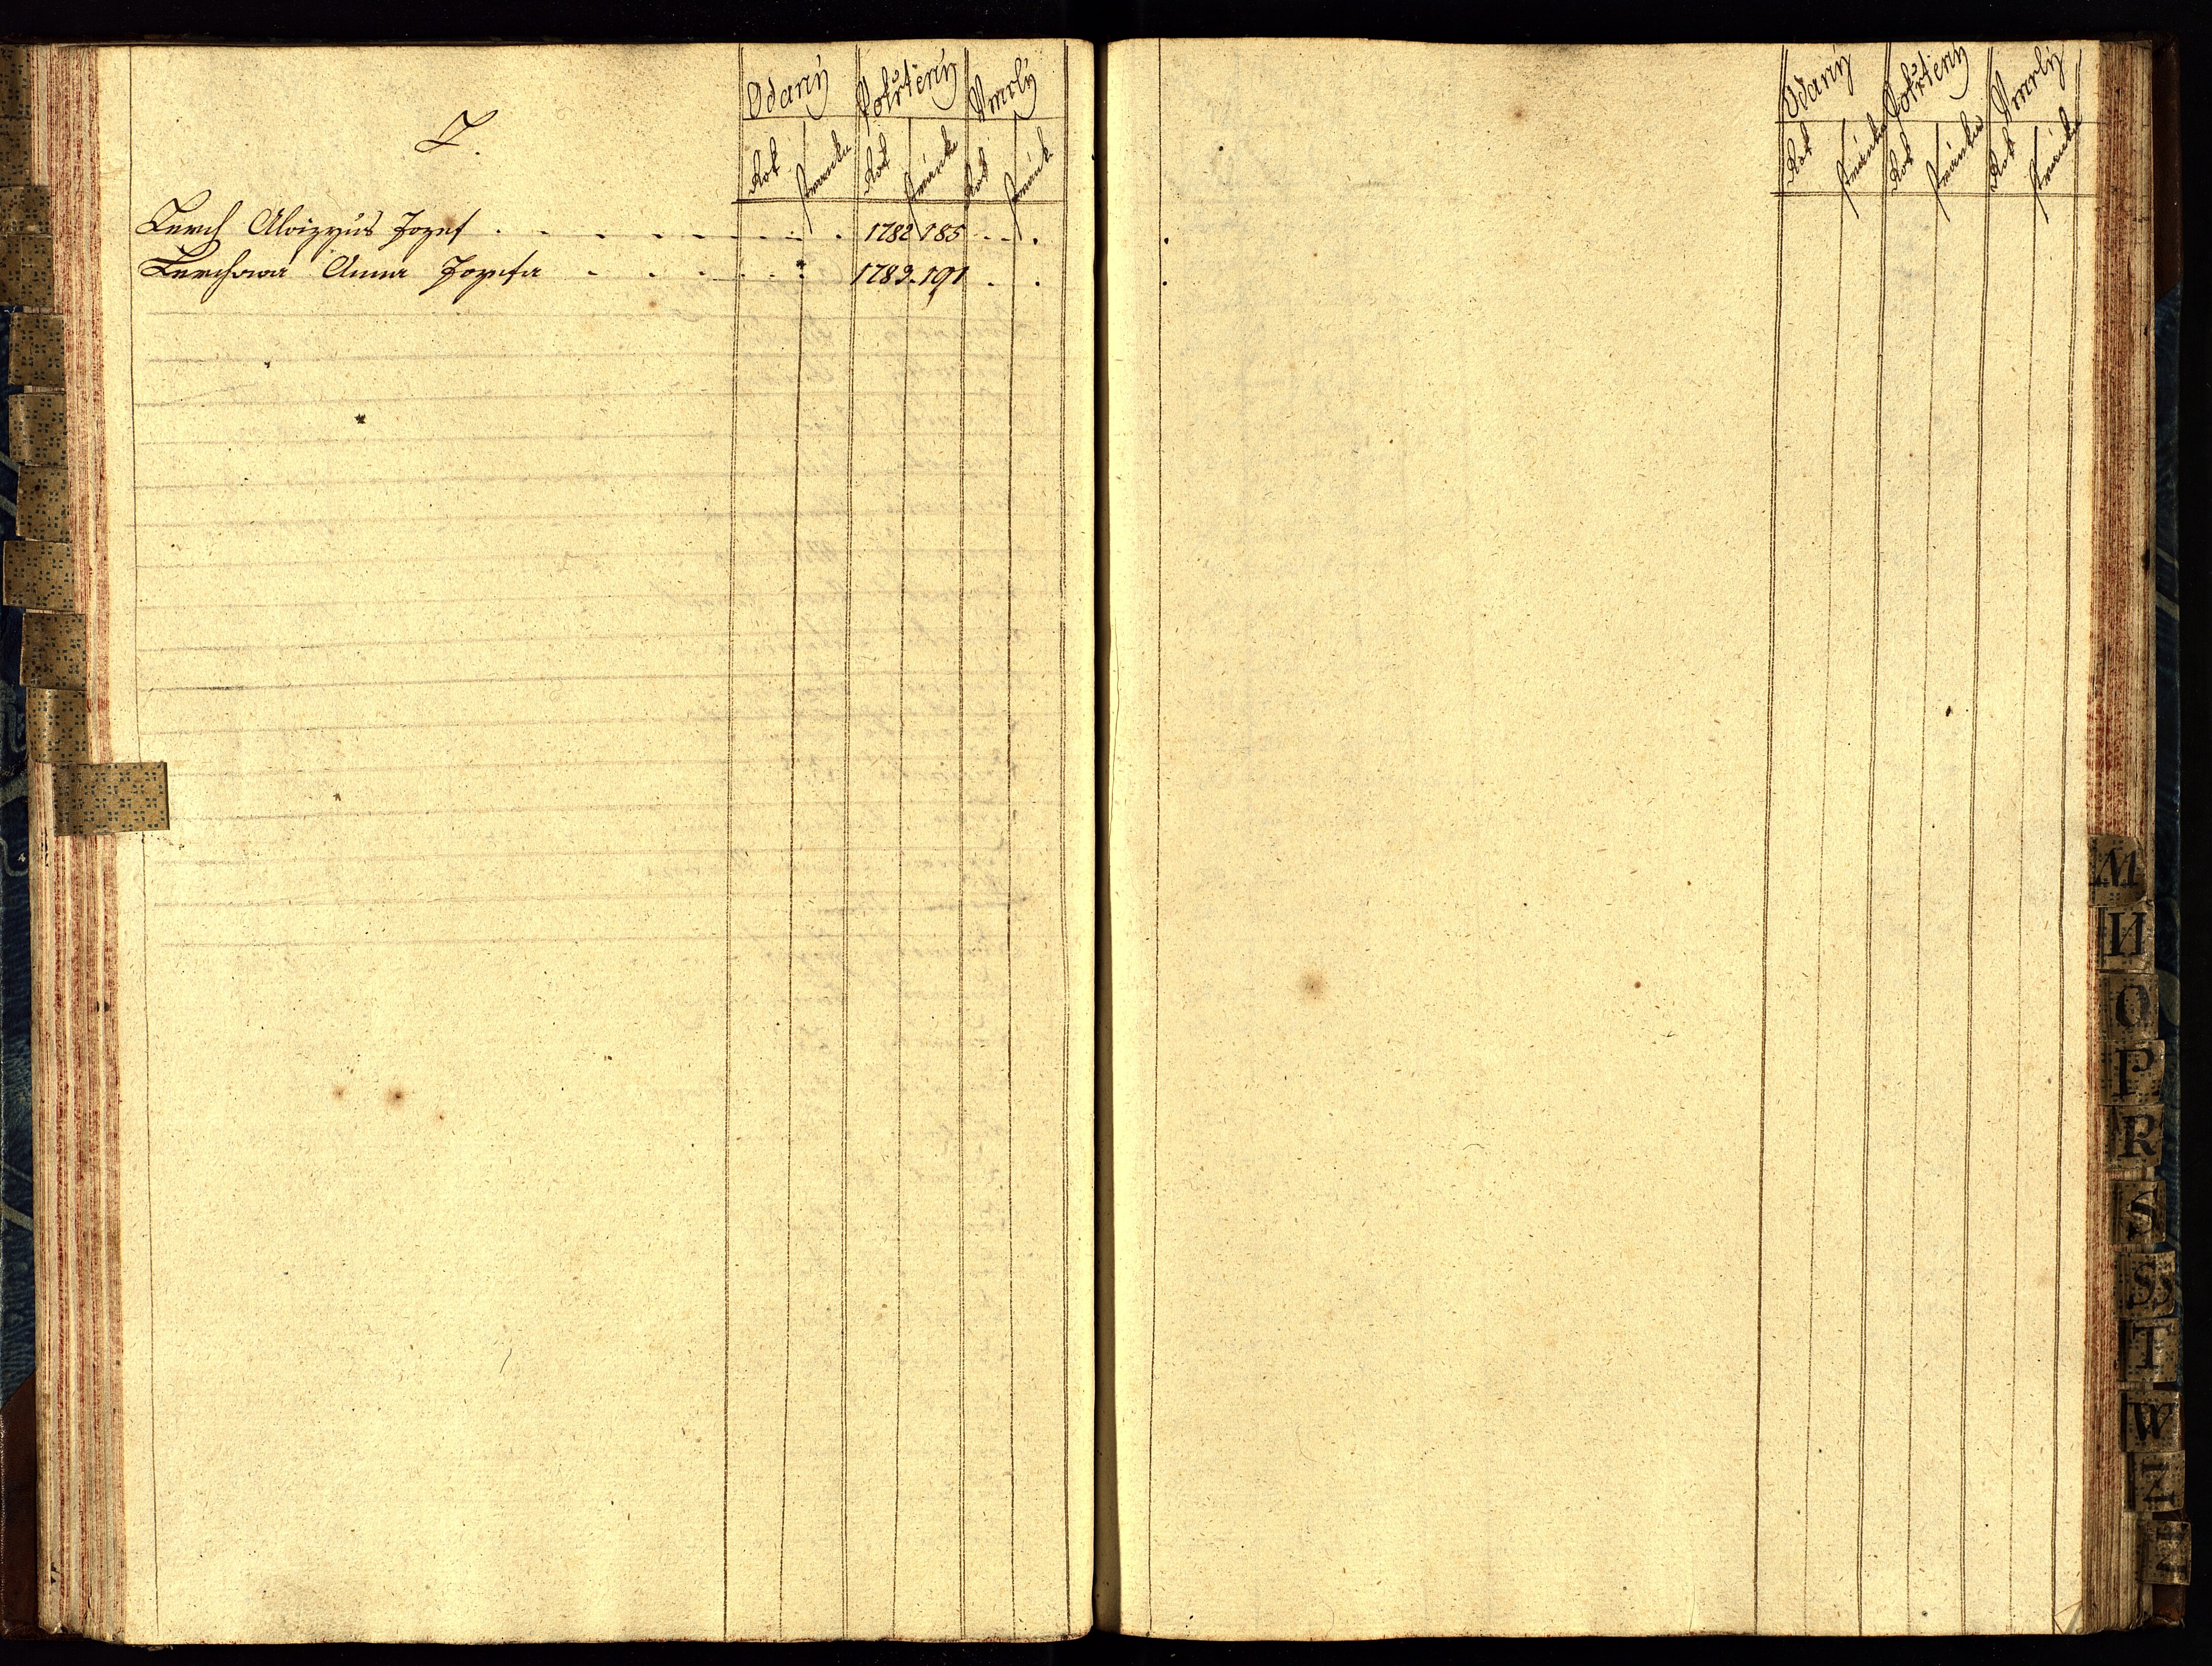 L.
Odaný Pokřtěný Vmrlý
Rok stránka Rok stránka Rok stránk
Lerch Aloizyus Jozef . . . . . . . . 1782 185 . . .
Lerchowa Anna Jozefa . . . . . 1789. 191 . .
Odaný Pokřtěný Vmrlý
Rok stránka Rok stránka Rok stránka
M
N
O
P
R
S
S
T
W
Z